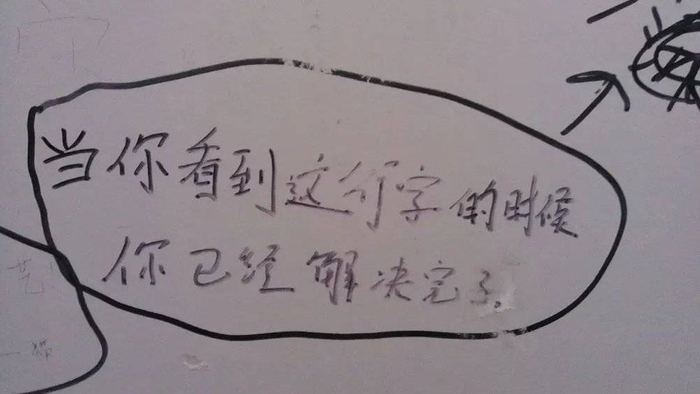 当你看到这行字的时候
你已经解决完了。